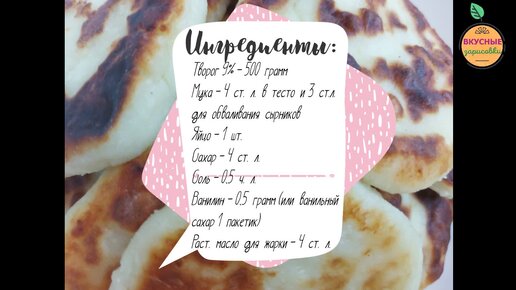 Ингредиенты:
Творог 9% – 500 грамм
Мука – 4 ст. л. в тесто и 3 ст.л.
для обваливания сырников
Яйцо – 1 шт.
Сахар – 4 ст. л.
Соль – 0,5 ч. л.
Ванилин – 0,5 грамм (или ванильный
сахар 1 пакетик)
Раст. масло для жарки – 4 ст. л.
ВКУСНЫЕ
зарисовки